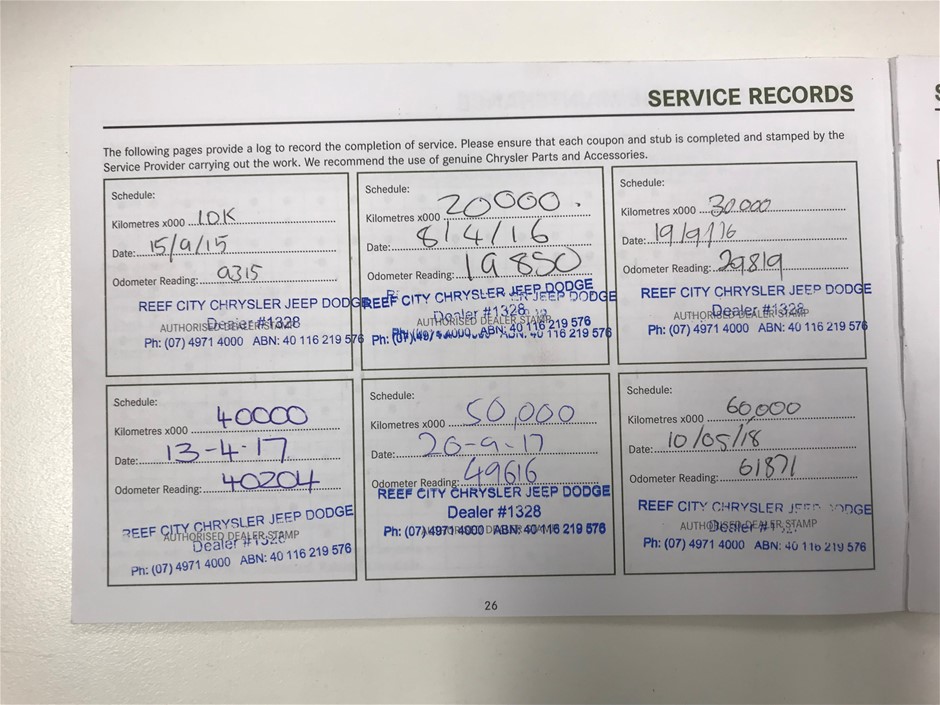 SERVICE RECORDS
The following pages provide a log to record the completion of service. Please ensure that each coupon and stub is completed and stamped by the
Service Provider carrying out the work. We recommend the use of genuine Chrysler Parts and Accessories.
Schedule:
Kilometres x000 10K
Date: 15/9/15
Odometer Reading: 9315
REEF CITY CHRYSLER JEEP DODGE
AUTHORISED DEALER STAMP
Dealer #1328
Ph: (07) 4971 4000 ABN: 40 116 219 576
Schedule:
Kilometres x000 20000.
Date: 8/4/16
Odometer Reading: 19850
REEF CITY CHRYSLER JEEP DODGE
JEEP DODGE
Dealer #1328
AUTHORISED DEALER STAMP
ABN: 40 116 219 576
Ph: 40 116 219 576
Schedule:
Kilometres x000 30000
Date: 19/9/16
Odometer Reading: 29819
REEF CITY CHRYSLER JEEP DODGE
Dealer #1328
AUTHORISED DEALER STAMP
Ph: (07) 4971 4000 ABN: 40 116 219 576
Schedule:
Kilometres x000 40000
Date: 13-4-17
Odometer Reading: 40204
REEF CITY CHRYSLER JEEP DODGE
AUTHORISED DEALER STAMP
Dealer #1328
Ph: (07) 4971 4000 ABN: 40 116 219 576
Schedule:
Kilometres x000 50,000
Date: 26-9-17
Odometer Reading: 49616
REEF CITY CHRYSLER JEEP DODGE
Dealer #1328
AUTHORISED DEALER STAMP
Ph: (07) 4971 4000 ABN: 40 116 219 576
Schedule:
Kilometres x000 60,000
Date: 10/05/18
Odometer Reading: 61871
REEF CITY CHRYSLER JEEP DODGE
AUTHORISED DEALER STAMP
Ph: (07) 4971 4000 ABN: 40 116 219 576
26